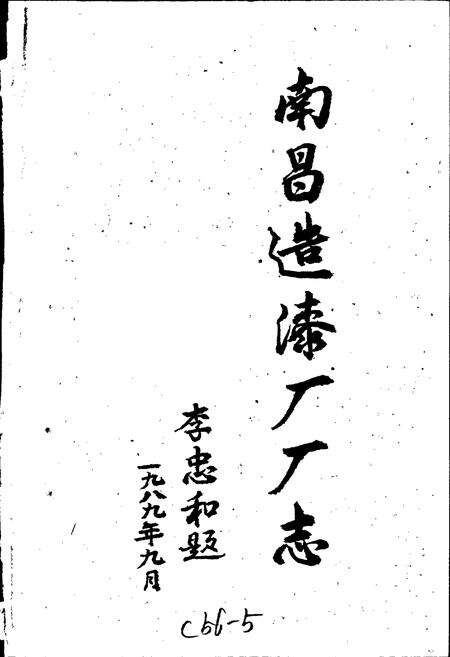 南昌造漆厂厂志
李忠和题
一九八九年九月
C66-5